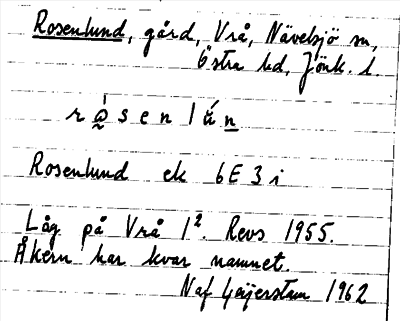 Rosenlund, gård, Vrå, Nävelsjö sn,
Östra hd, Jönk. l.
rọ̀senlún
Rosenlund ek 6E3i
Låg på Vrå 1². Revs 1955.
Åkern har kvar namnet.
Naf Geijerstam 1962